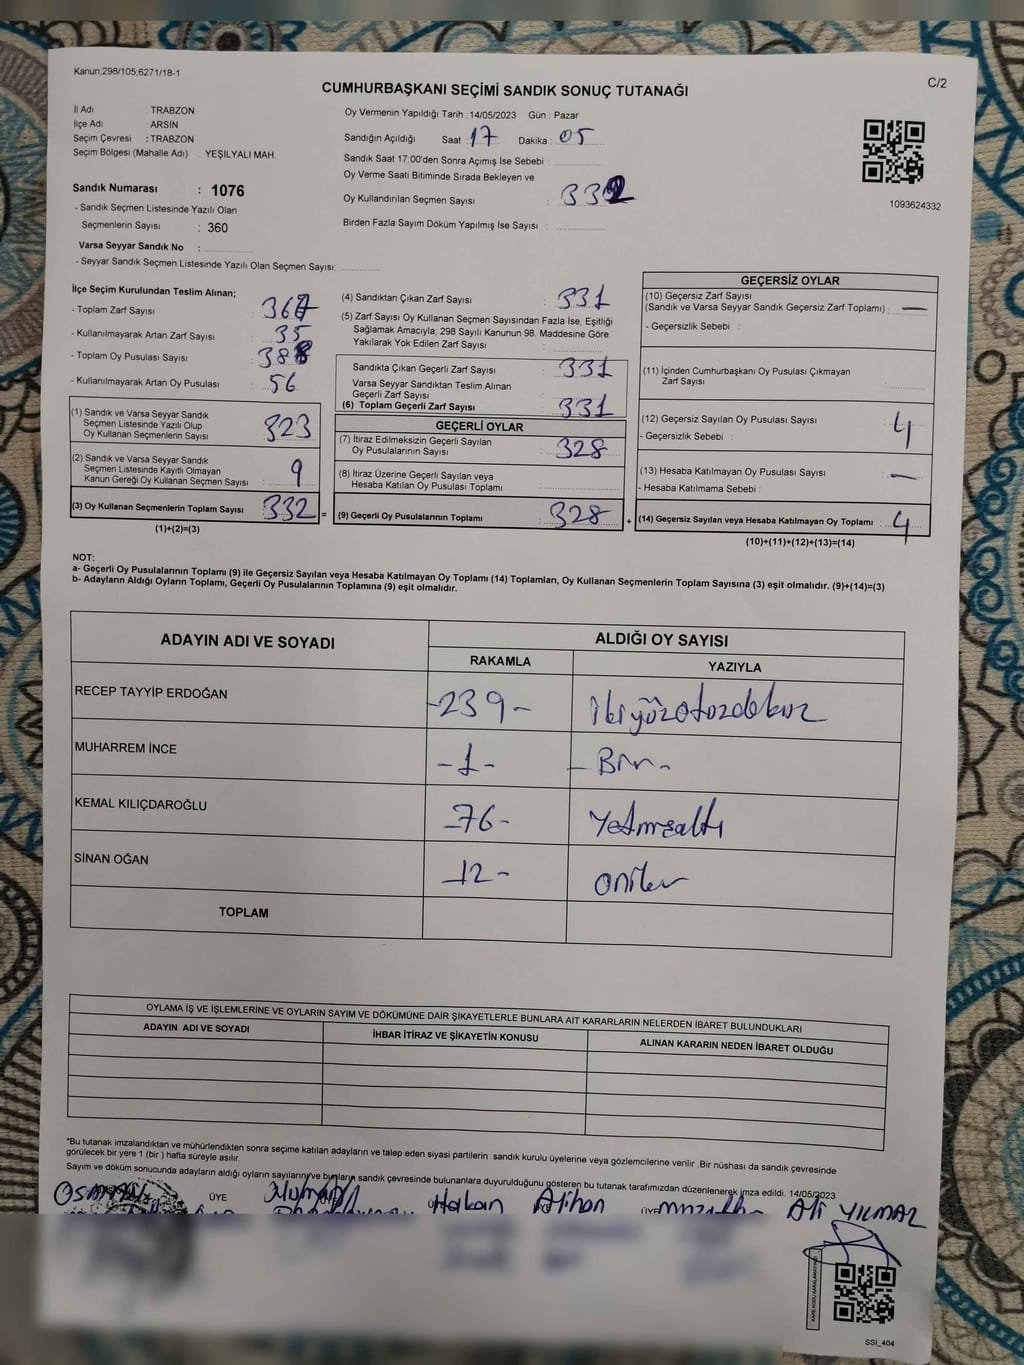 Kanun;298/105,6271/18-1
C/2
CUMHURBAŞKANI SEÇİMİ SANDIK SONUÇ TUTANAĞI
İl Adı : TRABZON
İlçe Adı : ARSİN
Seçim Çevresi : TRABZON
Seçim Bölgesi (Mahalle Adı) : YEŞİLYALI MAH.
Sandık Numarası : 1076
- Sandık Seçmen Listesinde Yazılı Olan
Seçmenlerin Sayısı : 360
Varsa Seyyar Sandık No :
- Seyyar Sandık Seçmen Listesinde Yazılı Olan Seçmen Sayısı:
Oy Vermenin Yapıldığı Tarih : 14/05/2023 Gün : Pazar
Sandığın Açıldığı Saat : 17 Dakika : 05
Sandık Saat 17:00'den Sonra Açımış İse Sebebi :
Oy Verme Saati Bitiminde Sırada Bekleyen ve
Oy Kullandırılan Seçmen Sayısı : 332
Birden Fazla Sayım Döküm Yapılmış İse Sayısı :
1093624332
İlçe Seçim Kurulundan Teslim Alınan;
- Toplam Zarf Sayısı : 367
- Kullanılmayarak Artan Zarf Sayısı : 35
- Toplam Oy Pusulası Sayısı : 388
- Kullanılmayarak Artan Oy Pusulası : 56
(1) Sandık ve Varsa Seyyar Sandık
Seçmen Listesinde Yazılı Olup
Oy Kullanan Seçmenlerin Sayısı : 323
(2) Sandık ve Varsa Seyyar Sandık
Seçmen Listesinde Kayıtlı Olmayan
Kanun Gereği Oy Kullanan Seçmen Sayısı : 9
(3) Oy Kullanan Seçmenlerin Toplam Sayısı : 332 =
(1)+(2)=(3)
(4) Sandıktan Çıkan Zarf Sayısı : 331
(5) Zarf Sayısı Oy Kullanan Seçmen Sayısından Fazla İse, Eşitliği
Sağlamak Amacıyla; 298 Sayılı Kanunun 98. Maddesine Göre
Yakılarak Yok Edilen Zarf Sayısı :
Sandıkta Çıkan Geçerli Zarf Sayısı : 331
Varsa Seyyar Sandıktan Teslim Alınan
Geçerli Zarf Sayısı :
(6) Toplam Geçerli Zarf Sayısı : 331
GEÇERLİ OYLAR
(7) İtiraz Edilmeksizin Geçerli Sayılan
Oy Pusulalarının Sayısı : 328
(8) İtiraz Üzerine Geçerli Sayılan veya
Hesaba Katılan Oy Pusulası Toplamı :
(9) Geçerli Oy Pusulalarının Toplamı : 328 +
GEÇERSİZ OYLAR
(10) Geçersiz Zarf Sayısı
(Sandık ve Varsa Seyyar Sandık Geçersiz Zarf Toplamı) : —
- Geçersizlik Sebebi :
(11) İçinden Cumhurbaşkanı Oy Pusulası Çıkmayan
Zarf Sayısı :
(12) Geçersiz Sayılan Oy Pusulası Sayısı : 4
- Geçersizlik Sebebi :
(13) Hesaba Katılmayan Oy Pusulası Sayısı : —
- Hesaba Katılmama Sebebi :
(14) Geçersiz Sayılan veya Hesaba Katılmayan Oy Toplamı : 4
(10)+(11)+(12)+(13)=(14)
NOT:
a- Geçerli Oy Pusulalarının Toplamı (9) ile Geçersiz Sayılan veya Hesaba Katılmayan Oy Toplamı (14) Toplamları, Oy Kullanan Seçmenlerin Toplam Sayısına (3) eşit olmalıdır. (9)+(14)=(3)
b- Adayların Aldığı Oyların Toplamı, Geçerli Oy Pusulalarının Toplamına (9) eşit olmalıdır.
ADAYIN ADI VE SOYADI ALDIĞI OY SAYISI
RAKAMLA YAZIYLA
RECEP TAYYİP ERDOĞAN -239- ikiyüzotuzdokuz
MUHARREM İNCE -1- -Bir-
KEMAL KILIÇDAROĞLU -76- Yetmişaltı
SİNAN OĞAN -12- oniki
TOPLAM
OYLAMA İŞ VE İŞLEMLERİNE VE OYLARIN SAYIM VE DÖKÜMÜNE DAİR ŞİKAYETLERLE BUNLARA AİT KARARLARIN NELERDEN İBARET BULUNDUKLARI
ADAYIN ADI VE SOYADI İHBAR İTİRAZ VE ŞİKAYETİN KONUSU ALINAN KARARIN NEDEN İBARET OLDUĞU
*Bu tutanak imzalandıktan ve mühürlendikten sonra seçime katılan adayların ve talep eden siyasi partilerin sandık kurulu üyelerine veya gözlemcilerine verilir. Bir nüshası da sandık çevresinde
görülecek bir yere 1 (bir) hafta süreyle asılır.
Sayım ve döküm sonucunda adayların aldığı oyların sayılarını ve bunların sandık çevresinde bulunanlara duyurulduğunu gösteren bu tutanak tarafımızdan düzenlenerek imza edildi. 14/05/2023
OSMAN ÜYE Hakan Alihan ÜYE Ali YILMAZ
SSİ_404